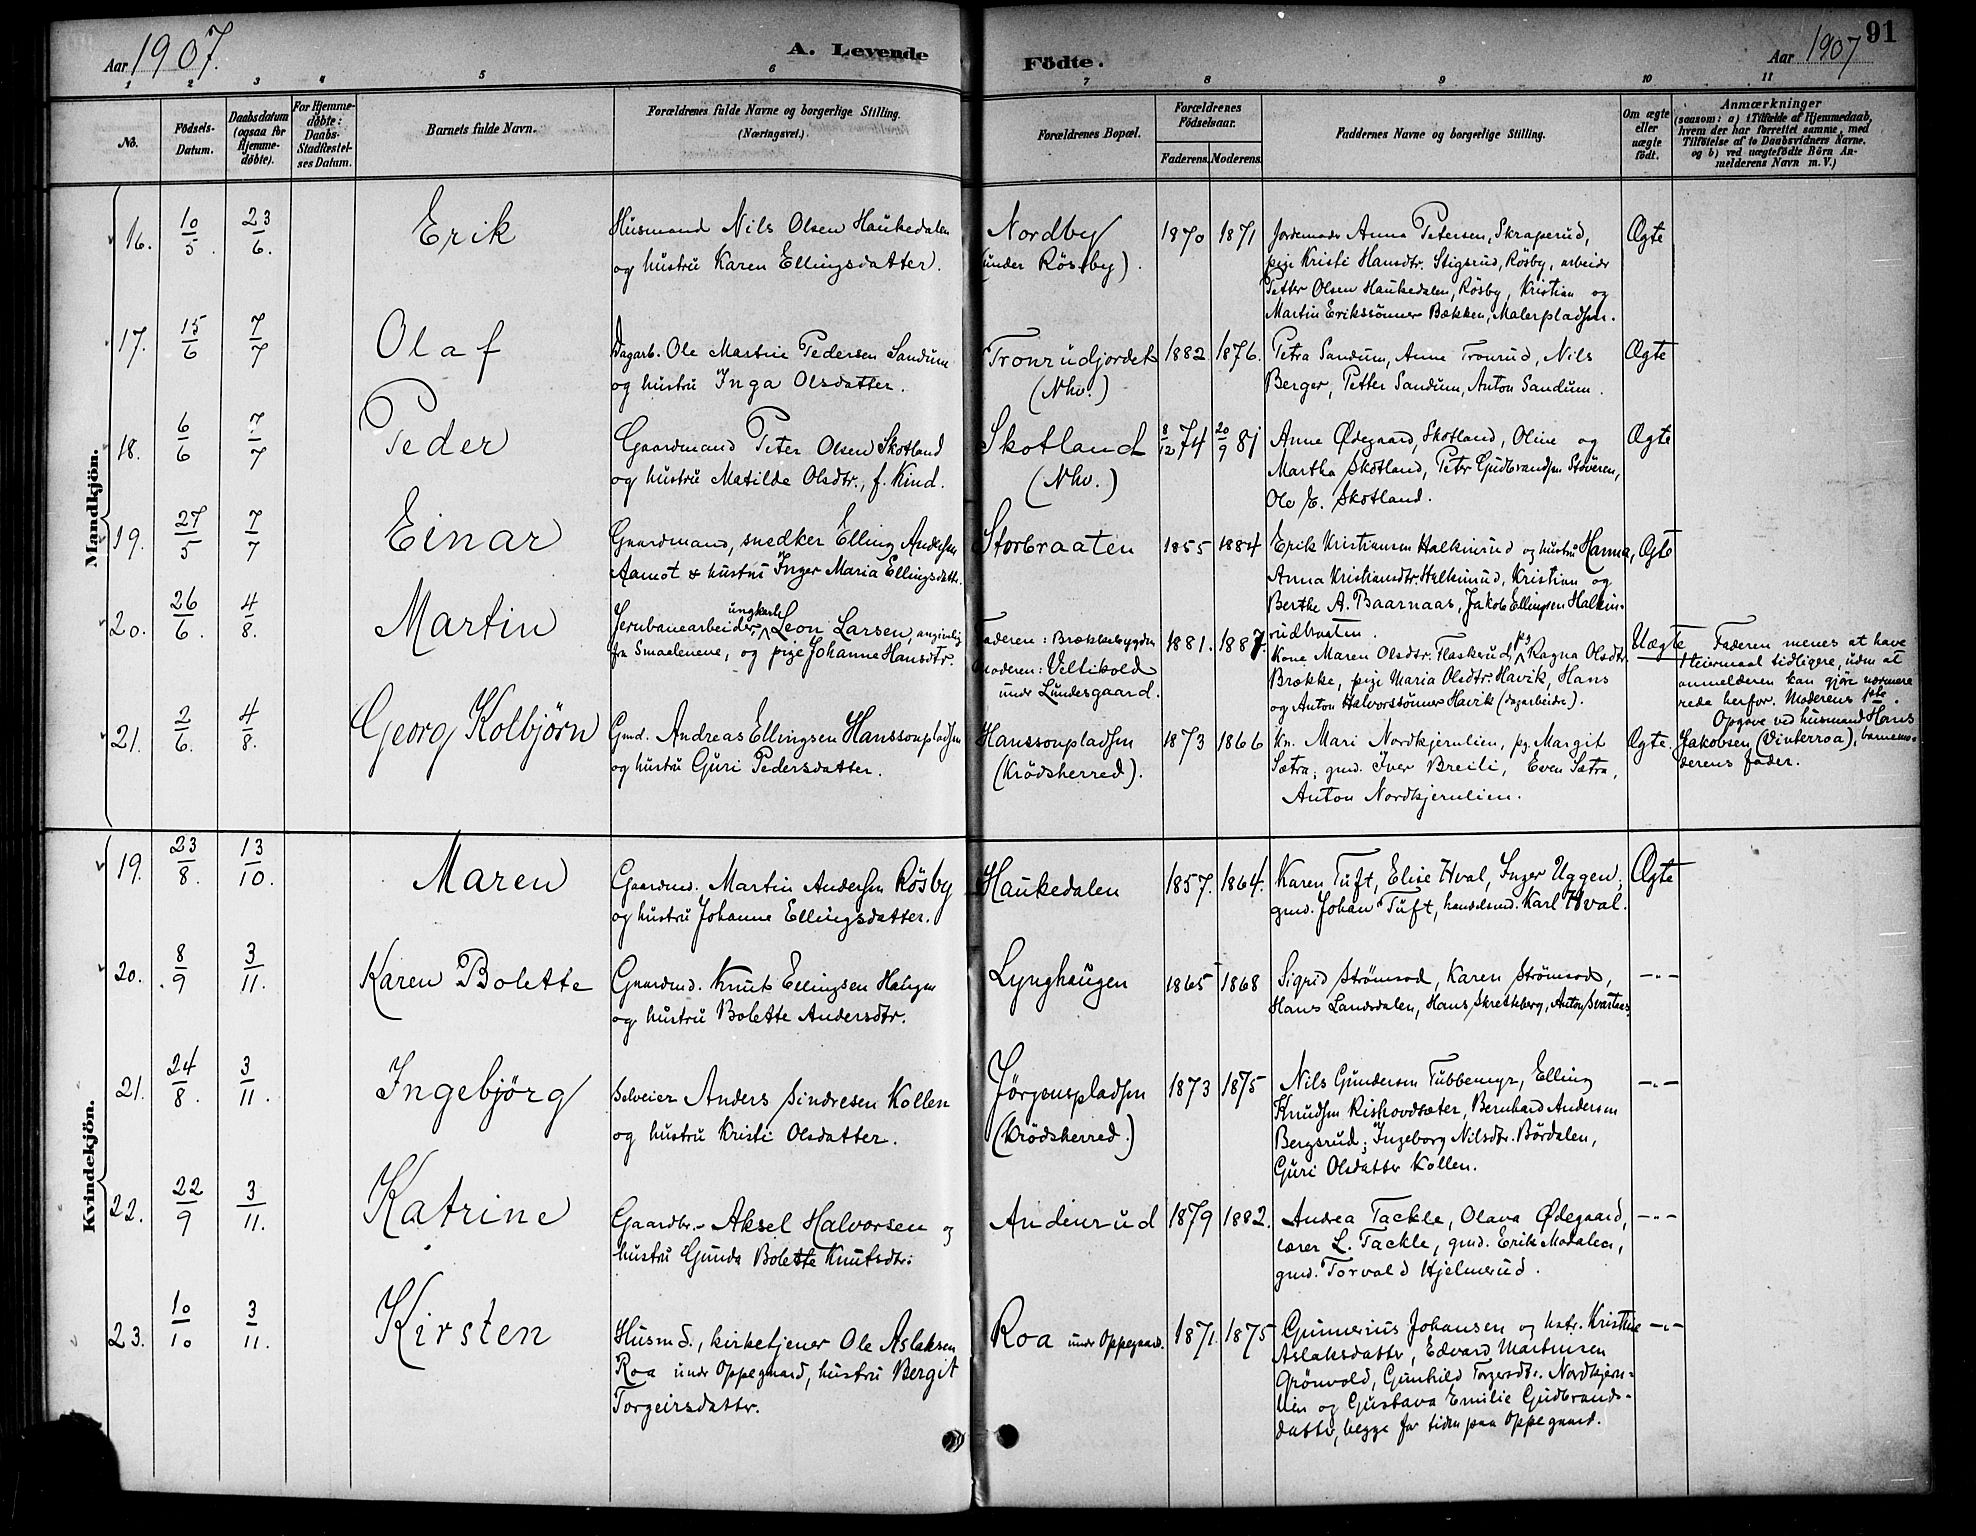 Aar 1907.
A. Levende
Födte.
Aar 1907
91
1 2 3 4 5 6 7 8 9 10 11
No.
Födsels-Datum.
Daabsdatum (ogsaa for Hjemme-döbte).
For Hjemme-döbte: Daabs-Stadfæstel-ses Datum.
Barnets fulde Navn.
Forældrenes fulde Navne og borgerlige Stilling. (Næringsvei.)
Forældrenes Bopæl.
Forældrenes Födselsaar.
Faderens. Moderens.
Faddernes Navne og borgerlige Stilling.
Om ægte eller uægte födt.
Anmærkninger
(saasom: a) i Tilfælde af Hjemmedaab,
hvem der har forrettet samme, med
Tilföielse af to Daabsvidners Navne,
og b) ved uægtefödte Börn An-
melderens Navn m. V.)
Mandkjön.
16. 10/5 23/6. Erik
Husmand Nils Olsen Haukedalen
og hustru Karen Ellingsdatter.
Nordby
(under Rösby).
1870 1871
Jordemoder Anna Petersen, Skraperud,
pige Kristi Hansdtr. Stigsrud, Rösby, arbeider
Petter Olsen Haukedalen, Rösby, Kristian og
Martin Erikssönner Bækken, Malerpladsen.
Ægte
17. 15/6 7/7 Olaf
Dagarb. Ole Martin Pedersen Sandum
og hustru Inga Olsdatter.
Tronrudjordet
(Nhv.)
1882. 1876.
Petra Sandum, Anne Tronrud, Nils
Berger, Petter Sandum, Anton Sandum.
Ægte
18. 6/6 7/7 Peder
Gaardmand Peter Olsen Skotland
og hustru Matilde Olsdtr., f. Kind.
Skotland
(Nhv.)
8/12 74 20/9 81
Anne Ödegaard, Skotland, Oline og
Martha Skotland, Peter Gudbrandsen Stöveren,
Ole E. Skotland.
Ægte
19. 27/5 7/7 Einar
Gaardmand, snedker Elling Andersen
Aamot & hustru Inger Maria Ellingsdatter.
Storbraaten
1855 1884
Erik Kristiansen Halkinrud og hustru Hanna,
Anna Kristiansdtr. Halkinrud, Kristian og
Berthe A. Baarnaas, Jakob Ellingsen Halkin-
rudbraaten.
Ægte
20. 26/6. 4/8. Martin
Jernbanearbeider, ungkarl Leon Larsen, angivelig
fra Smaalenene, og pige Johanne Hansdtr.
Faderen: Brækkebygden
Moderen: Veltikold
under Lundesgaard.
1881. 1887.
Kone Maren Olsdtr. Flaskerud, pg. Ragna Olsdtr.
Brække, pige Maria Olsdtr. Havik, Hans
og Anton Halvorssönner Havik (dagarbeidere).
Uægte
Faderen menes at have
1 leiermaal tidligere, uden at
anmelderen kan gjöre nærmere
rede herfor. Moderens 1ste.
Opgave ved husmand Hans
Jakobsen (Vinterroa), barnemo-
derens fader.
21. 2/6. 4/8. Georg Kolbjörn
Gmd. Andreas Ellingsen Hanssonpladsen
og hustru Guri Pedersdatter.
Hanssonpladsen
(Krödsherred).
1873 1866
Kn. Mari Nordkjernlien, pg. Margit
Sætra, gmd. Iver Breili, Even Sætra,
Anton Nordkjernlien.
Ægte.
Kvindekjön.
19. 23/8. 13/10. Maren
Gaardmd. Martin Andersen Rösby
og hustru Johanne Ellingsdatter.
Haukedalen
1857. 1864.
Karen Tuft, Elise Hval, Inger Uggen;
gmd. Johan Tuft, handelsmd. Karl Hval.
Ægte
20. 8/9 3/11. Karen Bolette
Gaardmd. Knut Ellingsen Haugen
og hustru Bolette Andersdtr.
Lynghaugen
1865 1868
Sigrid Strömsod, Karen Strömsod,
Hans Landsdalen, Hans Skretteberg, Anton Svartaas.
—"—
21. 24/8. 3/11. Ingebjörg
Selveier Anders Sindresen Kollen
og hustru Kristi Olsdatter.
Jörgenspladsen
(Krödsherred.)
1873 1875
Nils Gundersen Tubbemyr, Elling
Knudsen Rishovdsæter, Bernhard Andersen
Bergsrud; Ingeborg Nilsdtr. Bördalen,
Guri Olsdatter Kollen.
—"—
22. 22/9 3/11. Katrine
Gaardbr. Aksel Halvorsen og
hustru Gunda Bolette Knutsdtr.
Andenrud
1879 1882.
Andrea Tackle, Olava Ödegaard,
lærer L. Tackle, gmd. Erik Modalen,
gmd. Torvald Hjelmerud.
—"—
23. 10/10 3/11. Kirsten
Husmd., kirketjener Ole Aslaksen
Roa under Oppegaard, hustru Bergit
Torgeirsdatter.
Roa under Oppegaard.
1871. 1875
Gunnerius Johansen og hstr. Kristine
Aslaksdatter, Edvard Martinsen
Grönvold, Gunhild Torgersdtr. Nordkjern-
lien og Gustava Emilie Gudbrands-
datter, begge for tiden paa Oppegaard.
—"—